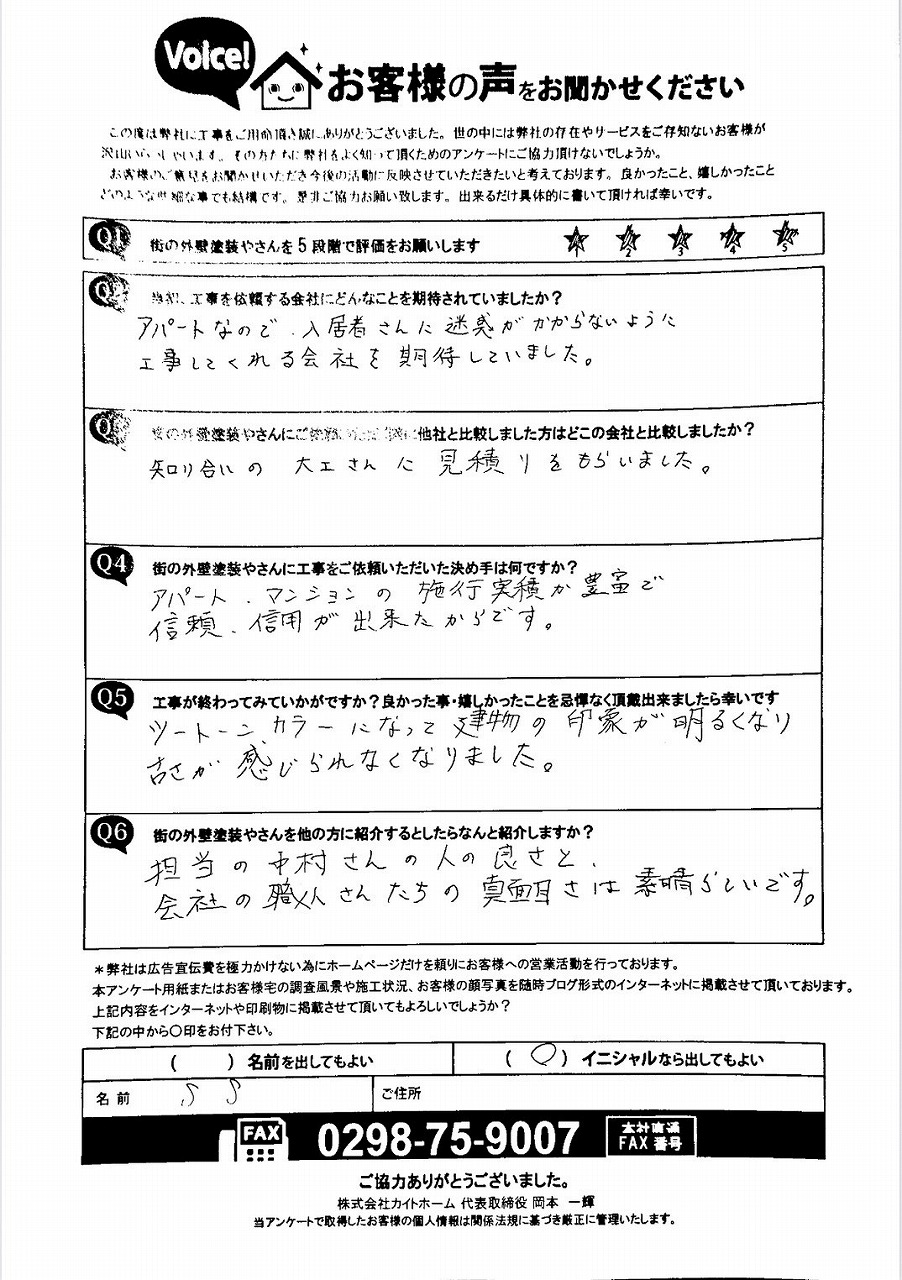 Voice!
お客様の声をお聞かせください
この度は弊社に工事をご用命頂き誠にありがとうございました。世の中には弊社の存在やサービスをご存知ないお客様が
沢山いらっしゃいます。その方たちに弊社をよく知って頂くためのアンケートにご協力頂けないでしょうか。
お客様のご意見をお聞かせいただき今後の活動に反映させていただきたいと考えております。良かったこと、嬉しかったこと
どのような些細な事でも結構です。是非ご協力お願い致します。出来るだけ具体的に書いて頂ければ幸いです。
Q1 街の外壁塗装やさんを5段階で評価をお願いします
1 2 3 4 5
Q2 当初、工事を依頼する会社にどんなことを期待されていましたか?
アパートなので、入居者さんに迷惑がかからないように
工事してくれる会社を期待していました。
街の外壁塗装やさんにご依頼 他社と比較しました方はどこの会社と比較しましたか?
知り合いの大工さんに見積りをもらいました。
Q4 街の外壁塗装やさんに工事をご依頼いただいた決め手は何ですか?
アパート、マンションの施行実積が豊富で
信頼、信用が出来たからです。
Q5 工事が終わってみていかがですか?良かった事・嬉しかったことを忌憚なく頂戴出来ましたら幸いです
ツートーンカラーになって建物の印象が明るくなり
古さが感じられなくなりました。
Q6 街の外壁塗装やさんを他の方に紹介するとしたらなんと紹介しますか?
担当の中村さんの人の良さと、
会社の職人さんたちの真面目さは素晴らしいです。
*弊社は広告宣伝費を極力かけない為にホームページだけを頼りにお客様への営業活動を行っております。
本アンケート用紙またはお客様宅の調査風景や施工状況、お客様の顔写真を随時ブログ形式のインターネットに掲載させて頂いております。
上記内容をインターネットや印刷物に掲載させて頂いてもよろしいでしょうか?
下記の中から〇印をお付下さい。
( ) 名前を出してもよい (〇) イニシャルなら出してもよい
名前 S S ご住所
FAX 0298-75-9007 本社直通
FAX番号
ご協力ありがとうございました。
株式会社カイトホーム 代表取締役 岡本 一輝
当アンケートで取得したお客様の個人情報は関係法規に基づき厳正に管理いたします。